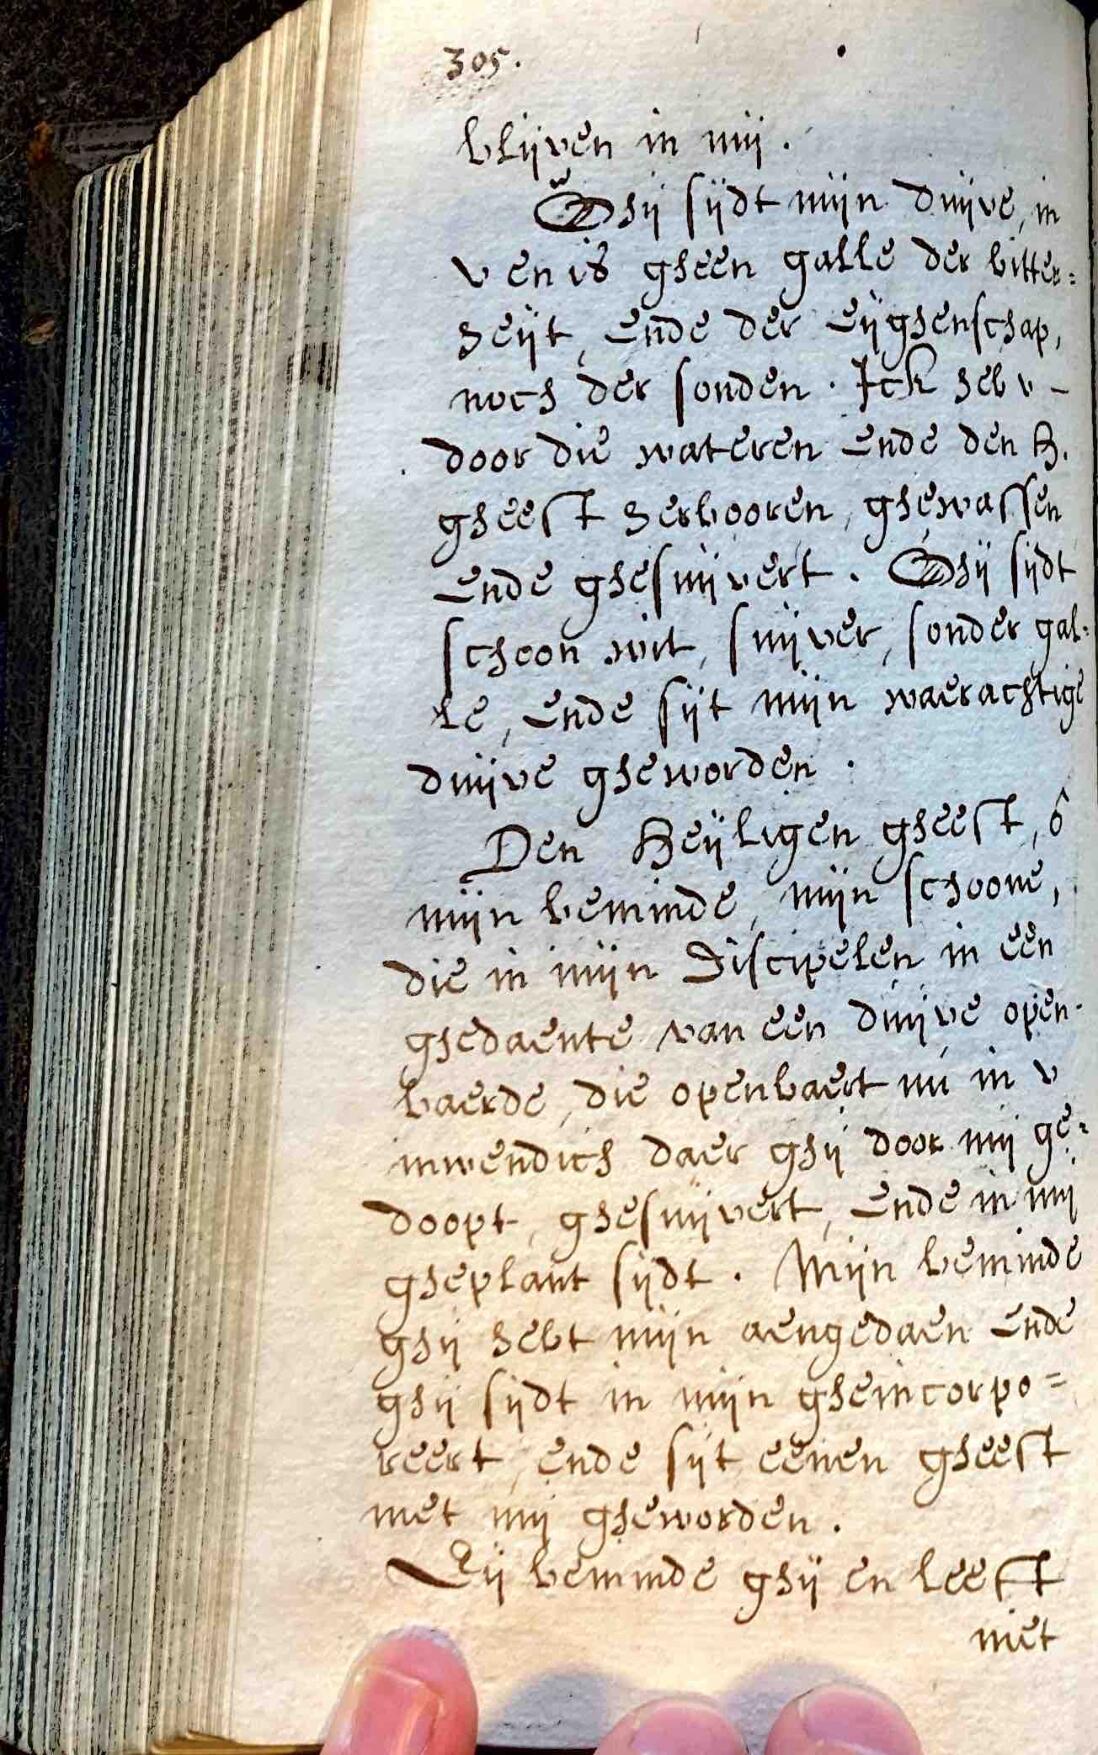 305.
blijven in mij.
Ghij sijdt mijn duijve, in
v en is gheen galle der bitter=
heijt, ende der eijghenschap,
noch der sonden. Ick heb v -
door die wateren ende den H.
gheest herbooren, ghewassen
ende ghesuijvert. Ghij sijdt
schoon wit, suijver, sonder gal=
le, ende sijt mijn waerachtige
duijve gheworden.
Den Heijligen gheest, ó
mijn beminde, mijn schoone,
die in mijn Discipelen in een
ghedaente van een duijve open=
baerde, die openbaert nu in v
inwendich daer ghij door mij ge=
doopt, ghesuijvert, ende in mij
gheplant sijdt. Mijn beminde
ghij hebt mijn aengedaen ende
ghij sijdt in mijn gheincorpo=
reert, ende sijt eenen gheest
met mij gheworden.
Eij beminde ghij en leeft
niet